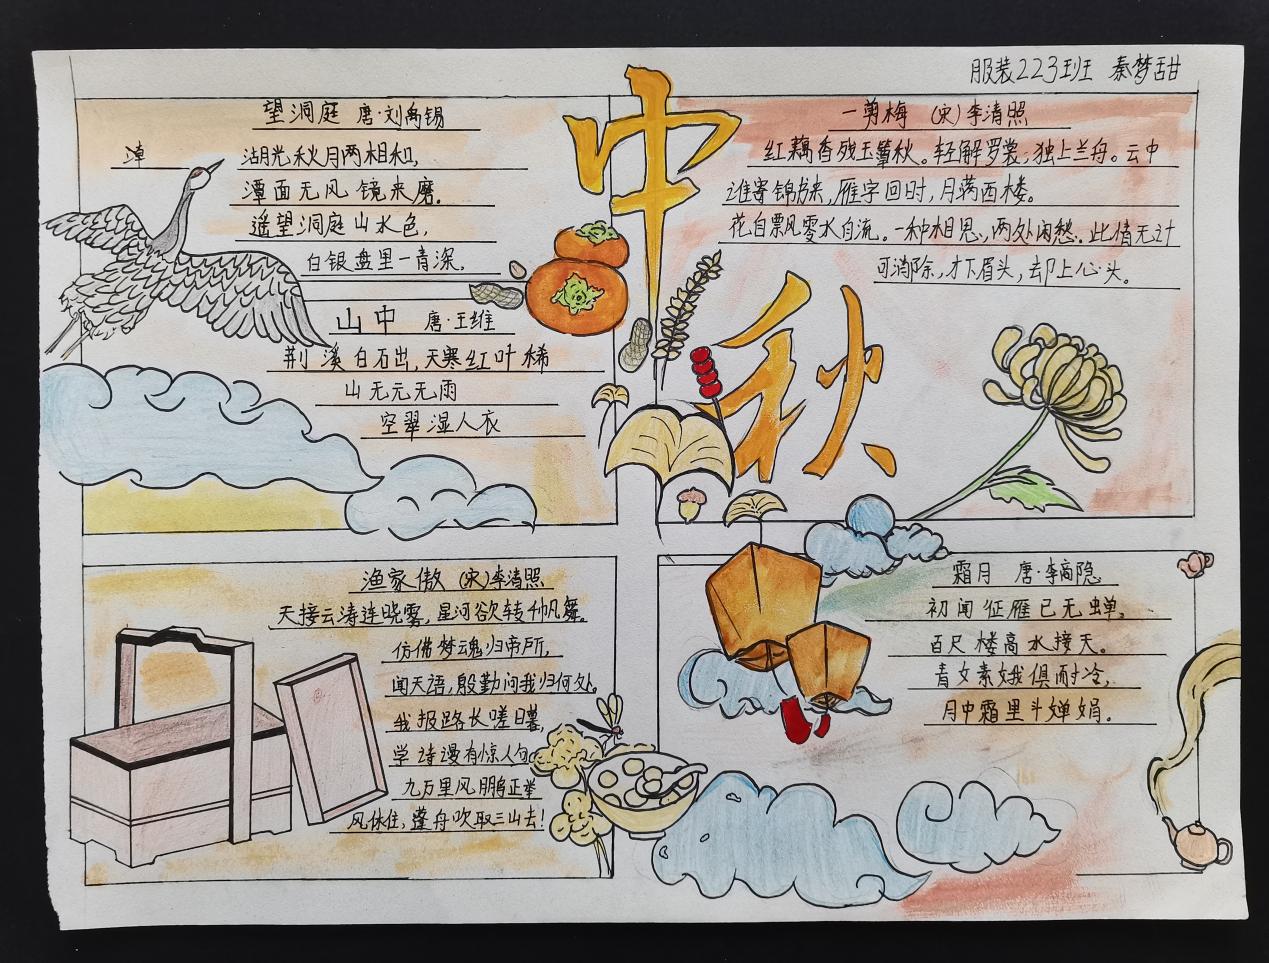 服装223班 秦梦甜
中
秋
望洞庭 唐·刘禹锡
湖光秋月两相和,
潭面无风镜来磨.
遥望洞庭山水色,
白银盘里一青深.
山中 唐·王维
荆溪白石出,天寒红叶稀
山无元无雨
空翠湿人衣
一剪梅 (宋)李清照
红藕香残玉簟秋。轻解罗裳,独上兰舟。云中
谁寄锦书来,雁字回时,月满西楼。
花自飘零水自流。一种相思,两处闲愁.此情无计
可消除,才下眉头,却上心头。
渔家傲 (宋)李清照
天接云涛连晓雾,星河欲转千帆舞。
仿佛梦魂归帝所,
闻天语,殷勤问我归何处。
我报路长嗟日暮,
学诗漫有惊人句
九万里风鹏正举
风休住,蓬舟吹取三山去!
霜月 唐·李商隐
初闻征雁已无蝉。
百尺楼高水接天。
青女素娥俱耐冷,
月中霜里斗婵娟。